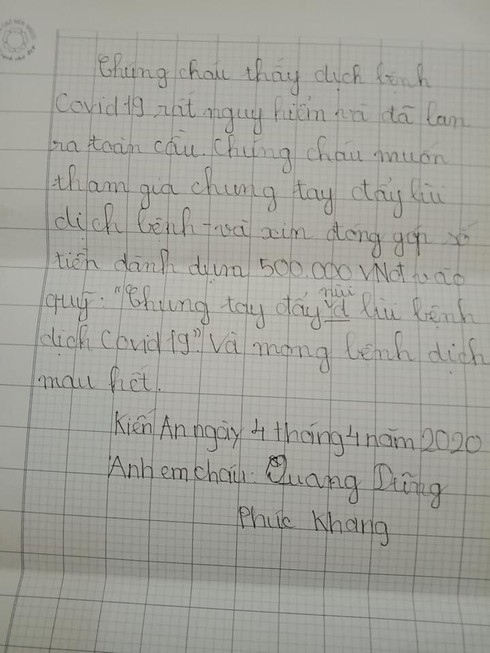 Chúng cháu thấy dịch bệnh
Covid19 rất nguy hiểm và đã lan
ra toàn cầu. Chúng cháu muốn
tham gia chung tay đẩy lùi
dịch bệnh và xin đóng góp số
tiền dành dụm 500.000 VNđ vào
quỹ: "Chung tay đẩy lùi bệnh
dịch Covid19" Và mong bệnh dịch
mau hết.
Kiến An ngày 4 tháng 4 năm 2020
Anh em cháu: Quang Dũng
Phúc Khang